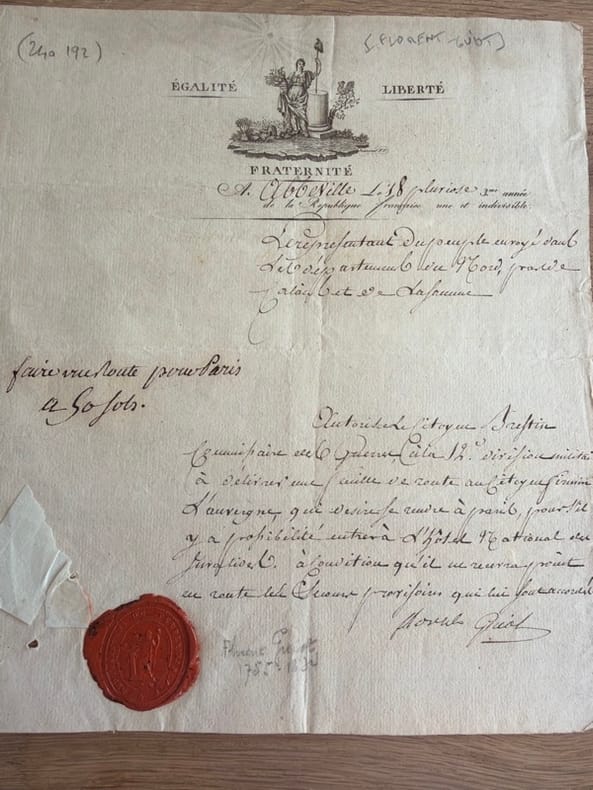 (240 192)
(FLORENT-GUIOT)
ÉGALITÉ
LIBERTÉ
FRATERNITÉ
A. Abbeville Le 18 pluviose 3me année
de la République française une et indivisible.
Le représentant du peuple envoyé dans
Les départements du Nord, pas de
Calais et de La Somme
faire une Route pour Paris
a 50 sols.
Autorise Le Citoyen
Commissaire des Guerres, de la 12e division militaire
à délivrer une feuille de route au Citoyen Firmin
L'auvergne, qui desire se rendre à paris, pour s'il
y a possibilité entrer à L'hôtel National des
Invalides. à Condition qu'il ne recevra point
en route les Secours provisoires qui lui sont accordés
Florent Guiot
Florent Guiot